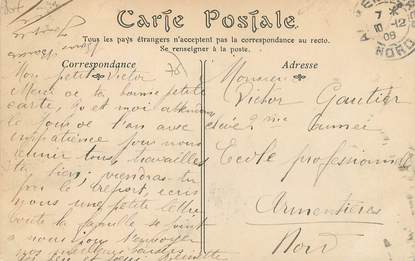 Carte Postale
Tous les pays étrangers n'acceptent pas la correspondance au recto.
Se renseigner à la poste.
Correspondance
Adresse
Mon petit Victor
Merci de ta bonne petite
carte, et moi attendons
le jour de l'an avec
impatience pour nous
réunir tous, travailles
tu bien; viendras-tu
le Tréport, écris
nous une petite lettre
toute la famille se joint
à nous pour t'envoyer
nos meilleurs baisers
Monsieur
Victor Gautier
élève 2me année
École professionnelle
Armentières
Nord